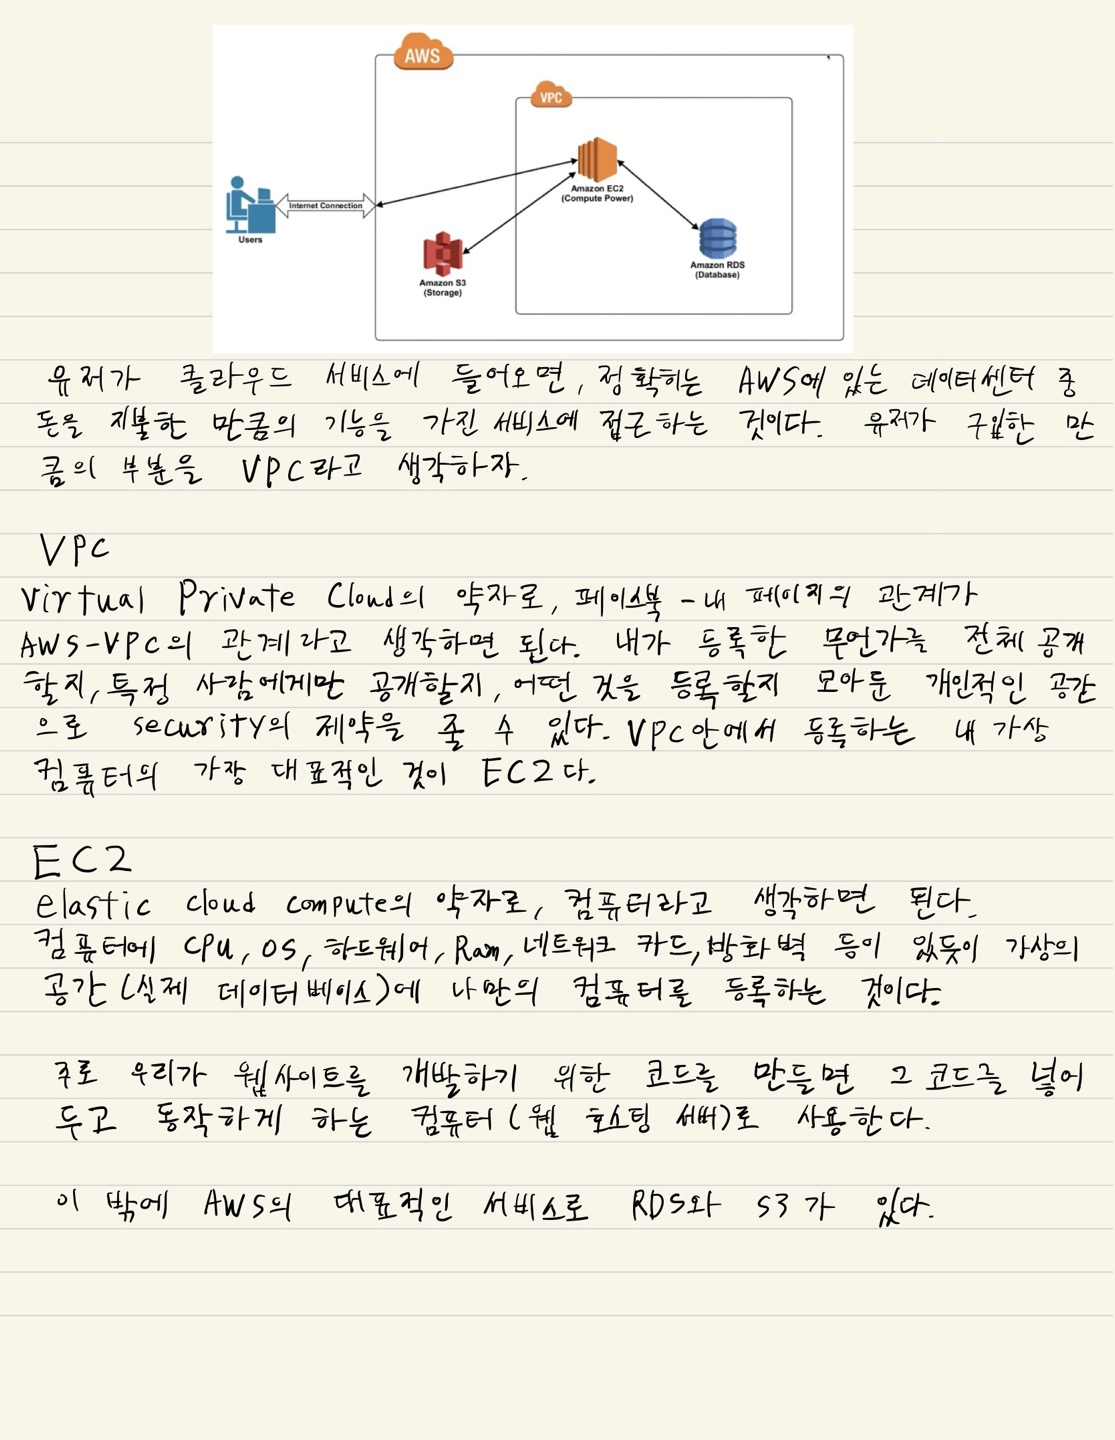 AWS
VPC
Amazon EC2
(Compute Power)
Internet Connection
Users
Amazon S3
(Storage)
Amazon RDS
(Database)
유저가 클라우드 서비스에 들어오면, 정확히는 AWS에 있는 데이터센터 중
돈을 지불한 만큼의 기능을 가진 서비스에 접근하는 것이다. 유저가 구입한 만
큼의 부분을 VPC라고 생각하자.
VPC
Virtual Private Cloud의 약자로, 페이스북 - 내 페이지의 관계가
AWS-VPC의 관계라고 생각하면 된다. 내가 등록한 무언가를 전체 공개
할지, 특정 사람에게만 공개할지, 어떤 것을 등록할지 모아둔 개인적인 공간
으로 security의 제약을 줄 수 있다. VPC안에서 등록하는 내 가상
컴퓨터의 가장 대표적인 것이 EC2다.
EC2
elastic cloud compute의 약자로, 컴퓨터라고 생각하면 된다.
컴퓨터에 CPU, OS, 하드웨어, Ram, 네트워크 카드, 방화벽 등이 있듯이 가상의
공간 (실제 데이터베이스)에 나만의 컴퓨터를 등록하는 것이다.
주로 우리가 웹사이트를 개발하기 위한 코드를 만들면 그 코드를 넣어
두고 동작하게 하는 컴퓨터 (웹 호스팅 서버)로 사용한다.
이 밖에 AWS의 대표적인 서비스로 RDS와 S3가 있다.